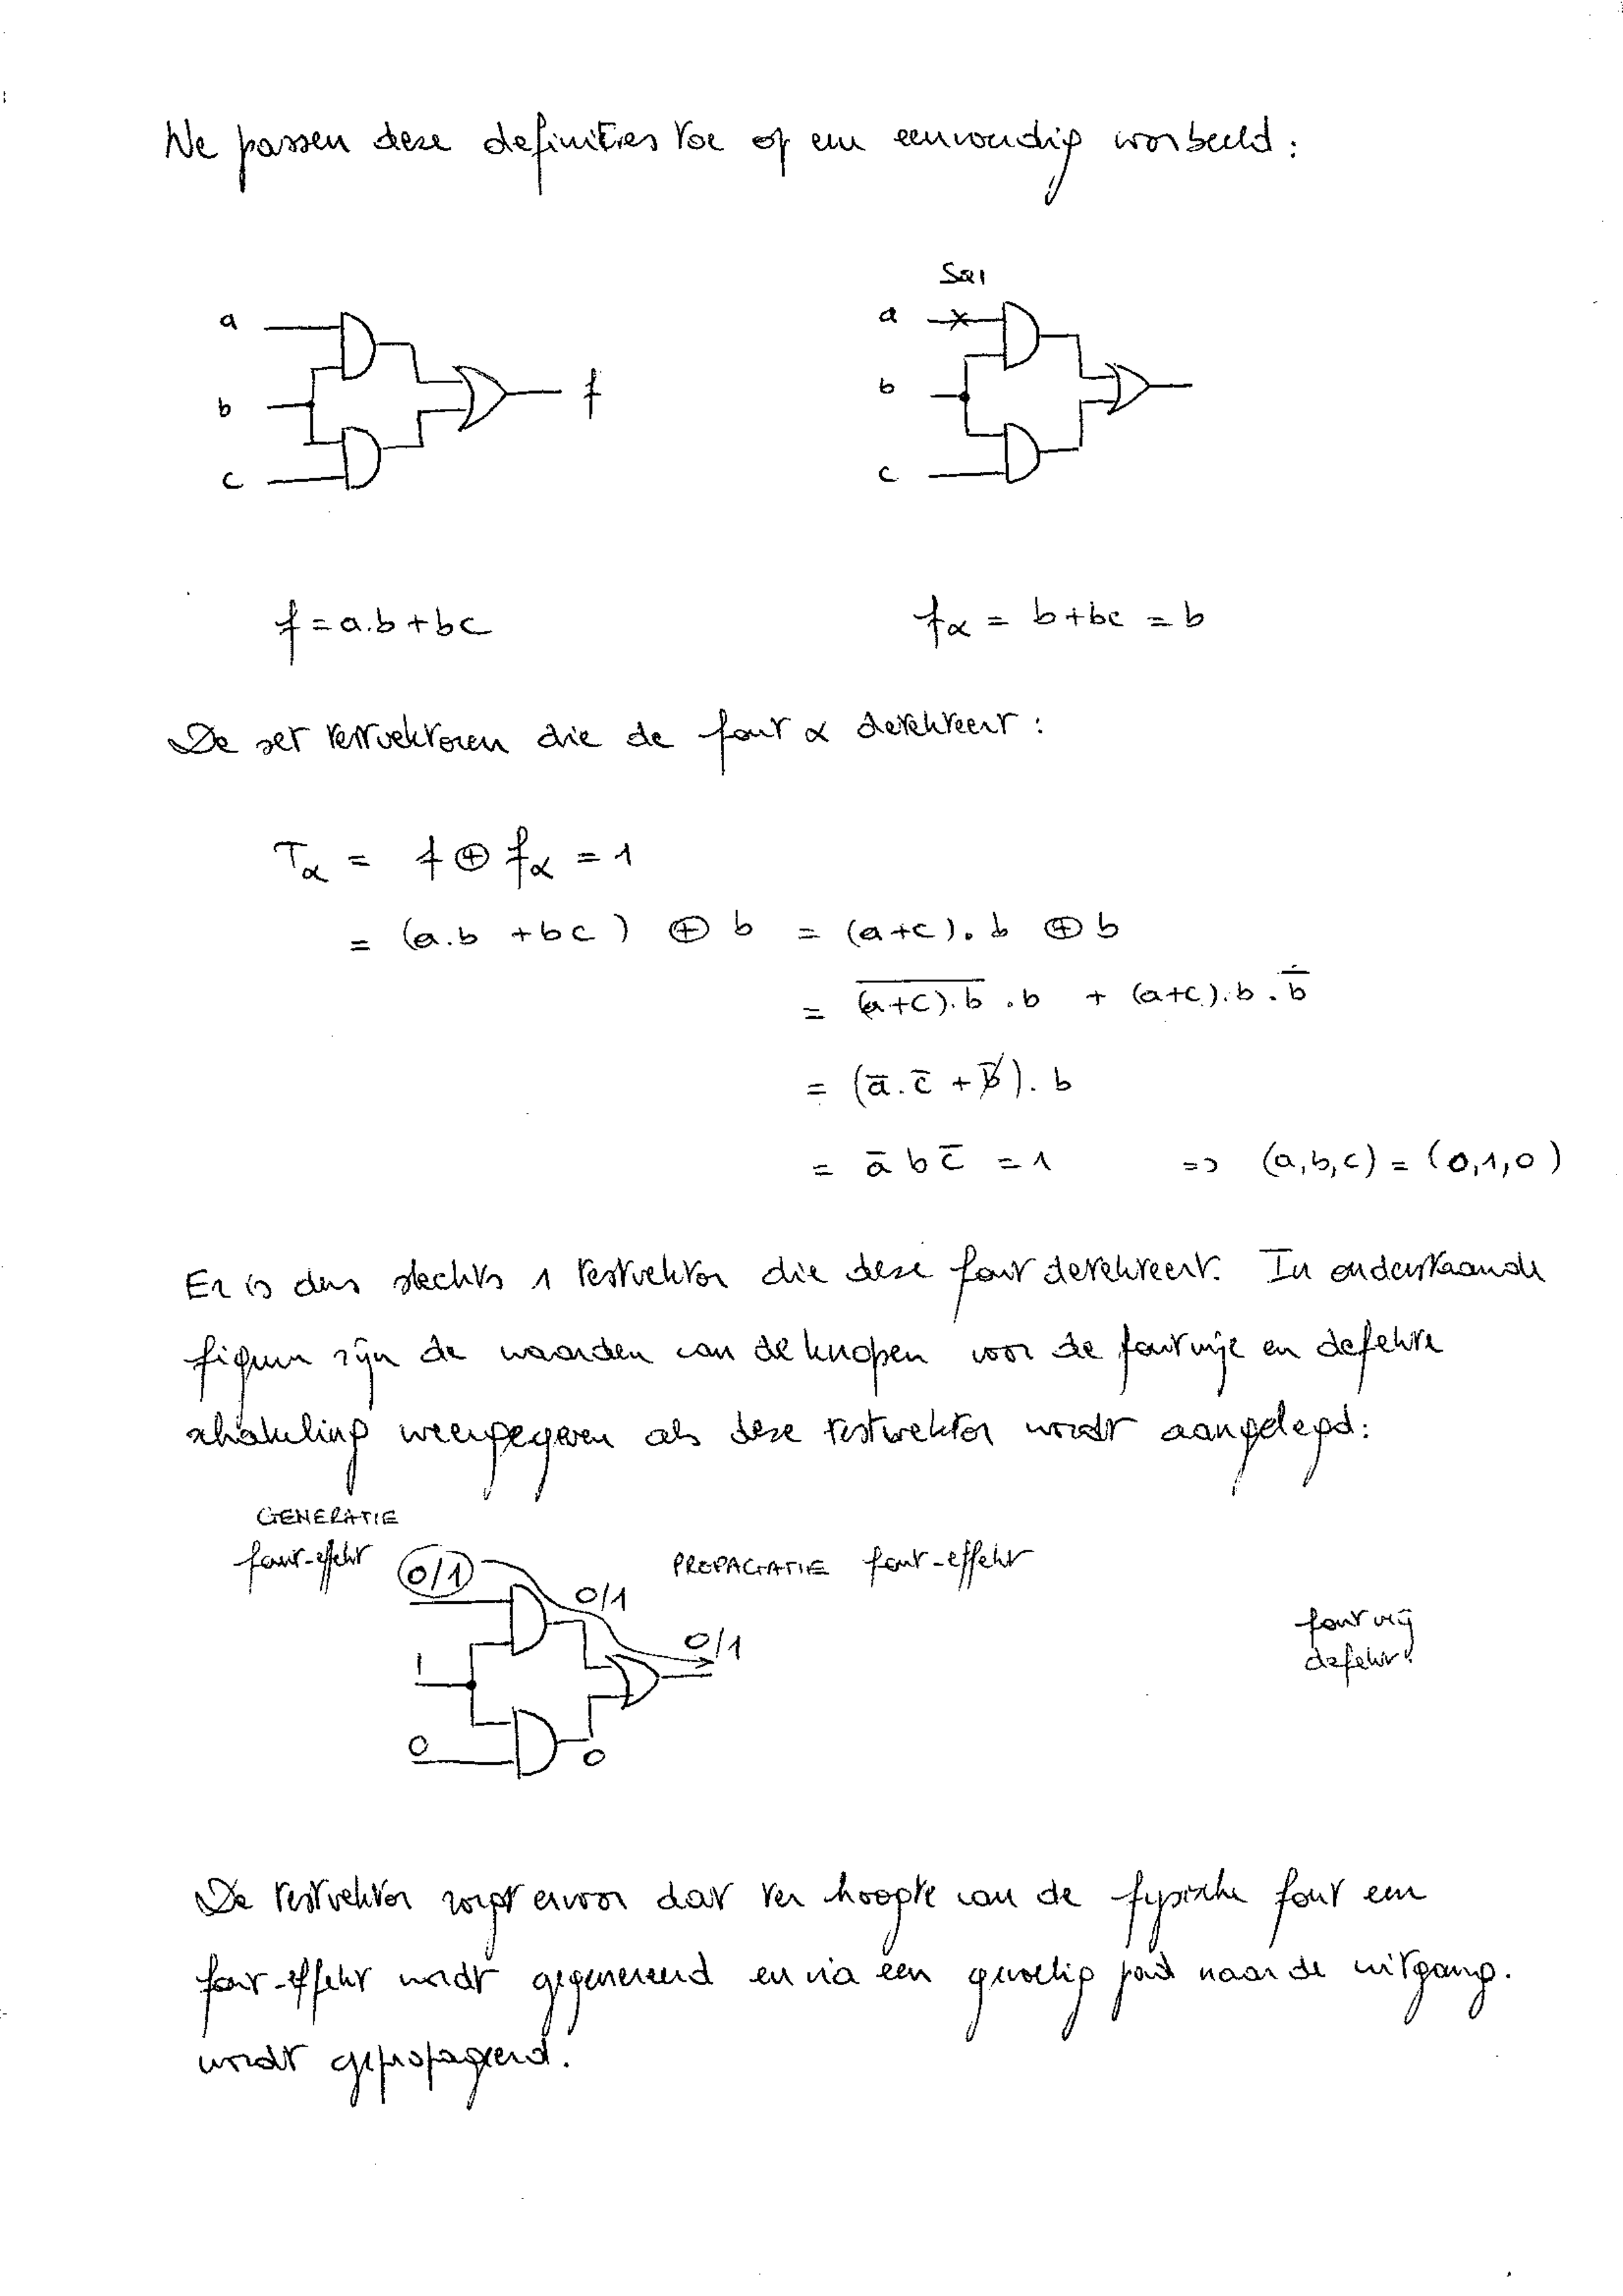 We passen deze definities toe op een eenvoudig voorbeeld:
Sa1
a
b
c
f
a
b
c
f = a.b + bc
fα = b + bc = b
De set testvektoren die de fout α detekteert:
Tα = f ⊕ fα = 1
= (a.b + bc) ⊕ b = (a+c).b ⊕ b
= \overline{(a+c).b} .b + (a+c).b.b̄
= (ā.c̄ + b̄).b
= ā b c̄ = 1 => (a,b,c) = (0,1,0)
Er is dus slechts 1 testvektor die deze fout detekteert. In onderstaande
figuur zijn de waarden van de knopen voor de foutvrije en defekte
schakeling weergegeven als deze testvektor wordt aangelegd:
GENERATIE
fout-effekt
0/1
PROPAGATIE fout-effekt
0/1
0/1
1
0
0
foutvrij
defekt
De testvektor zorgt ervoor dat ter hoogte van de fysische fout een
fout-effekt wordt gegenereerd en via een gevoelig pad naar de uitgang.
wordt gepropageerd.